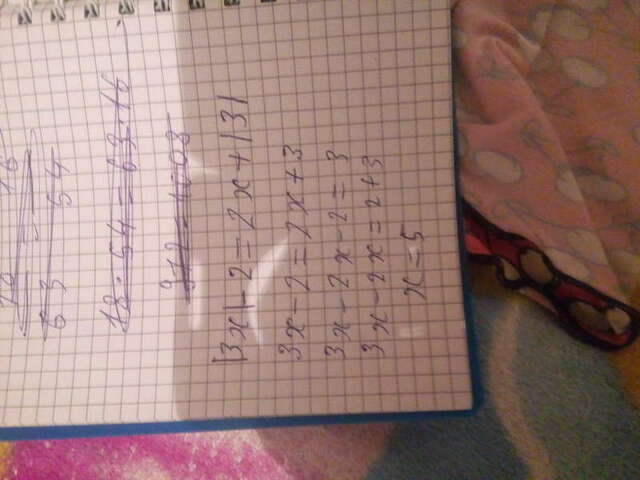 18 : 54 = 63 : 16
|3x| - 2 = 2x + |3|
3x - 2 = 2x + 3
3x - 2x - 2 = 3
3x - 2x = 2 + 3
x = 5